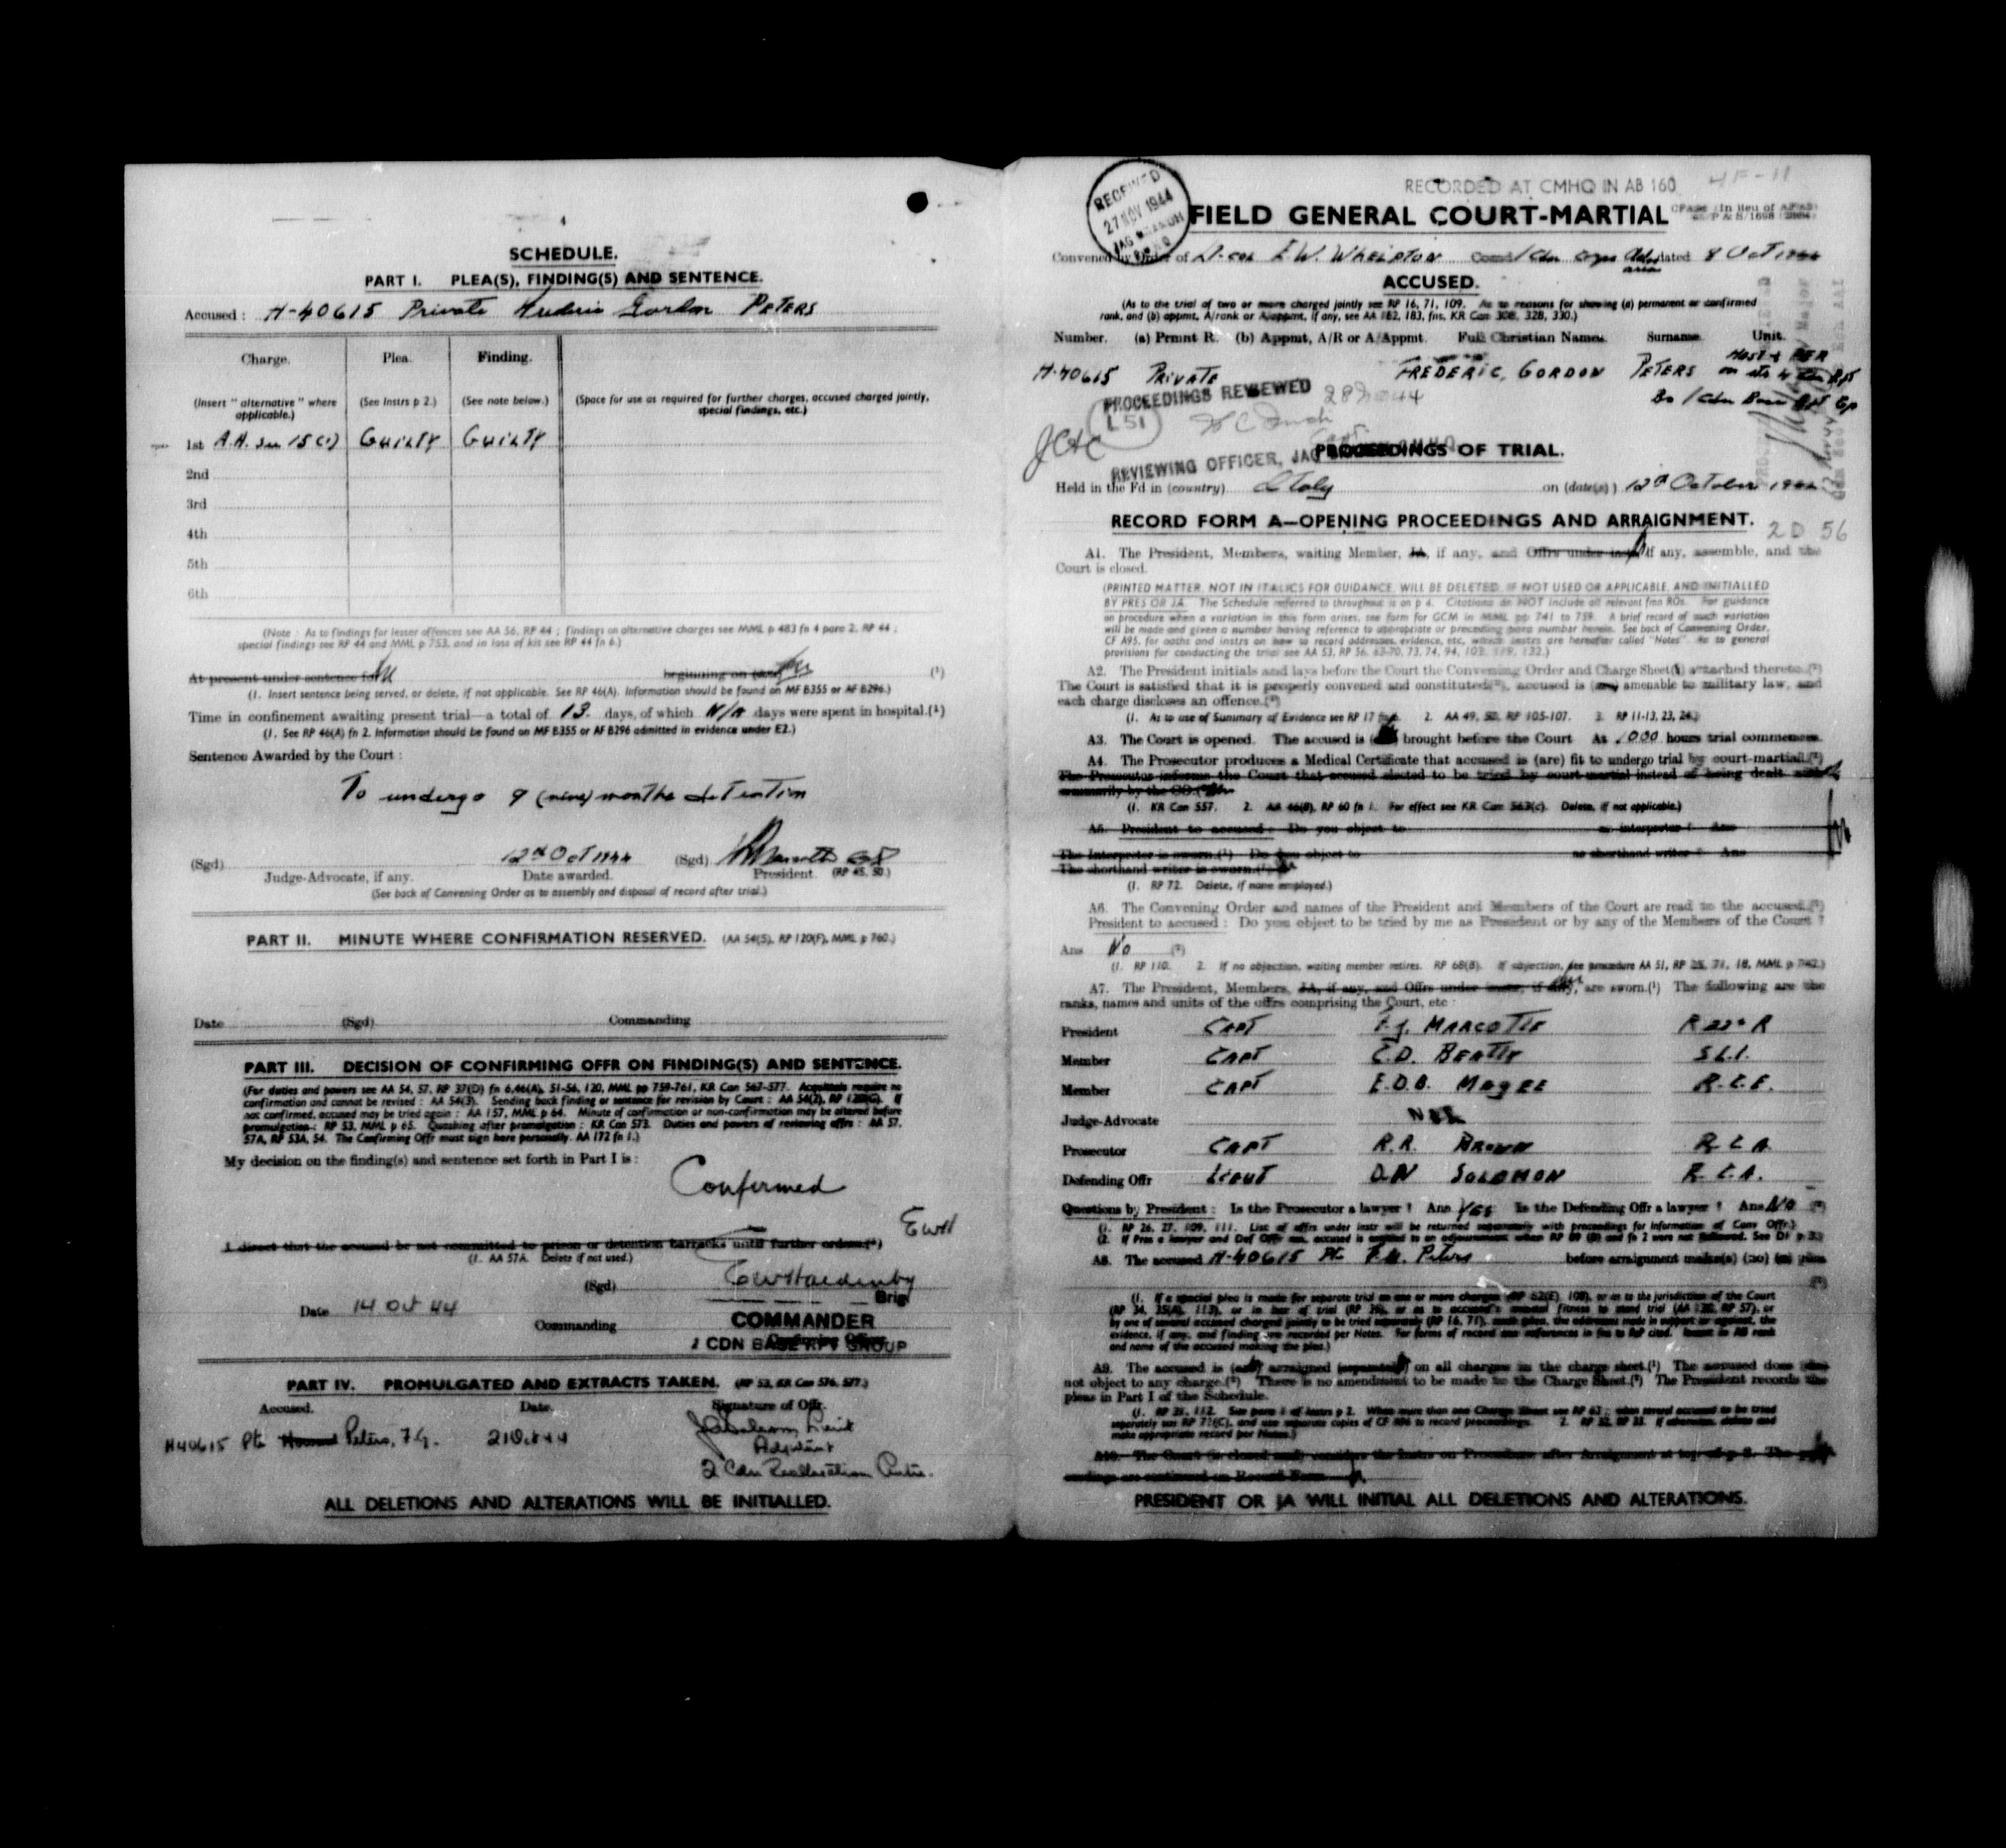 4
SCHEDULE.
PART I. PLEA(S), FINDING(S) AND SENTENCE.
Accused : H-40615 Private Frederic Gordon PETERS
Charge. Plea. Finding.
(Insert "alternative" where applicable.) (See Instrs p 2.) (See note below.) (Space for use as required for further charges, accused charged jointly, special findings, etc.)
1st A.A. Sec 15 (1) GUILTY GUILTY
2nd
3rd
4th
5th
6th
(Note : As to findings for lesser offences see AA 56, RP 44 ; findings on alternative charges see MML p 483 fn 4 para 2, RP 44 ;
special findings see RP 44 and MML p 753, and in loss of kit see RP 44 fn 6.)
At present under sentence for beginning on (date) (1)
(1. Insert sentence being served, or delete, if not applicable. See RP 46(A). Information should be found on MF B355 or AF B296.)
Time in confinement awaiting present trial—a total of 13 days, of which N/A days were spent in hospital.(1)
(1. See RP 46(A) fn 2. Information should be found on MF B355 or AF B296 admitted in evidence under E2.)
Sentence Awarded by the Court :
To undergo 9 (nine) months detention
(Sgd) 12th Oct 1944 (Sgd)
Judge-Advocate, if any. Date awarded. President. (RP 45, 50.)
(See back of Convening Order as to assembly and disposal of record after trial.)
PART II. MINUTE WHERE CONFIRMATION RESERVED. (AA 54(5), RP 120(F), MML p 760.)
Date (Sgd) Commanding
PART III. DECISION OF CONFIRMING OFFR ON FINDING(S) AND SENTENCE.
(For duties and powers see AA 54, 57, RP 37(D) fn 6,46(A), 51-56, 120, MML pp 759-761, KR Can 567-577. Acquittals require no
confirmation and cannot be revised : AA 54(3). Sending back finding or sentence for revision by Court : AA 54(2), RP 120(G). If
not confirmed, accused may be tried again : AA 157, MML p 64. Minute of confirmation or non-confirmation may be altered before
promulgation : RP 53, MML p 65. Quashing after promulgation : KR Can 573. Duties and powers of reviewing offrs : AA 57,
57A, RP 53A, 54. The Confirming Offr must sign here personally. AA 172 fn 1.)
My decision on the finding(s) and sentence set forth in Part I is :
Confirmed
EWH
I direct that the accused be not committed to prison or detention barracks until further orders.(1)
(1. AA 57A. Delete if not used.)
(Sgd) EWHaldenby
Brig
Date 14 Oct 44
Commanding COMMANDER
1 CDN BASE RFT GROUP
PART IV. PROMULGATED AND EXTRACTS TAKEN. (RP 53, KR Can 576, 577.)
Accused. Date. Signature of Offr.
H40615 Pte Peters, F.G. 21 Oct 44 Lieut
Adjutant
2 Cdn Reallocation Centre.
ALL DELETIONS AND ALTERATIONS WILL BE INITIALLED.
RECEIVED
27 NOV 1944
JAG BRANCH
RECORDED AT CMHQ IN AB 160 4F-11
FIELD GENERAL COURT-MARTIAL
Convened by Order of Lt-Col E.W. WHELPTON Comd 1 Cdn Corps Adm area dated 8 Oct 1944
ACCUSED.
(As to the trial of two or more charged jointly see RP 16, 71, 109. As to reasons for showing (a) permanent or confirmed
rank, and (b) appmt, A/rank or A/appmt, if any, see AA 182, 183, fns, KR Can 308, 328, 330.)
Number. (a) Prmnt R. (b) Appmt, A/R or A/Appmt. Full Christian Names. Surname. Unit.
H-40615 PRIVATE FREDERIC, GORDON PETERS Hast & PER
on sts 4 Cdn Rft
Bn 1 Cdn Base Rft Gp
PROCEEDINGS REVIEWED
L 51
REVIEWING OFFICER, JAG
PROCEEDINGS OF TRIAL.
Held in the Fd in (country) Italy on (date(s)) 12th October 1944
RECORD FORM A—OPENING PROCEEDINGS AND ARRAIGNMENT. 2D 56
A1. The President, Members, waiting Member, JA, if any, and Offrs under instr, if any, assemble, and the
Court is closed.
(PRINTED MATTER, NOT IN ITALICS FOR GUIDANCE, WILL BE DELETED, IF NOT USED OR APPLICABLE, AND INITIALLED
BY PRES OR JA. The Schedule referred to throughout is on p 4. Citations do NOT include all relevant fns ROs. For guidance
on procedure when a variation in this form arises, see form for GCM in MML pp 741 to 759. A brief record of such variation
will be made and given a number having reference to appropriate or preceding para number herein. See back of Convening Order,
CF A95, for oaths and instrs on how to record addresses, evidence, etc, which instrs are hereafter called "Notes". As to general
provisions for conducting the trial see AA 53, RP 56, 63-70, 73, 74, 94, 103, 119, 132.)
A2. The President initials and lays before the Court the Convening Order and Charge Sheet(s) attached thereto.(1)
The Court is satisfied that it is properly convened and constituted(2), accused is (are) amenable to military law, and
each charge discloses an offence.(3)
(1. As to use of Summary of Evidence see RP 17 2. AA 49, 50, RP 105-107. 3. RP 11-13, 23, 24.)
A3. The Court is opened. The accused is (are) brought before the Court. At 1000 hours trial commences.
A4. The Prosecutor produces a Medical Certificate that accused is (are) fit to undergo trial by court-martial.(1)
The Prosecutor informs the Court that accused elected to be tried by court-martial instead of being dealt with
summarily by the CO.(2)
(1. KR Can 557. 2. AA 46(8), RP 60 fn 1. For effect see KR Can 563(c). Delete, if not applicable.)
A5. President to accused : Do you object to as interpreter ? Ans
The Interpreter is sworn.(1) Do you object to as shorthand writer ? Ans
The shorthand writer is sworn.(1)
(1. RP 72. Delete, if none employed.)
A6. The Convening Order and names of the President and Members of the Court are read to the accused.(1)
President to accused : Do you object to be tried by me as President or by any of the Members of the Court ?
Ans No (2)
(1. RP 110. 2. If no objection, waiting member retires. RP 68(B). If objection, see procedure AA 51, RP 25, 71, 18, MML p 742.)
A7. The President, Members, JA, if any, and Offrs under instr, if any, are sworn.(1) The following are the
ranks, names and units of the offrs comprising the Court, etc :
President CAPT F.J. MARCOTTE R 22e R
Member CAPT C.D. BEATTY S.L.I.
Member CAPT E.D.B. MAGEE R.C.E.
Judge-Advocate NIL
Prosecutor CAPT R.A. BROWN R.C.A.
Defending Offr LIEUT D.N SOLOMON R.C.A.
Questions by President : Is the Prosecutor a lawyer ? Ans Yes Is the Defending Offr a lawyer ? Ans No (2)
(1. RP 26, 27, 109, 111. List of offrs under instr will be returned separately with proceedings for information of Conv Offr.)
A8. The accused H-40615 Pte F.G. Peters before arraignment make(s) (no)
A9. The accused is (are) arraigned (separately) on all charges in the charge sheet.(1) The accused does (do)
not object to any charge.(2) There is no amendment to be made to the Charge Sheet.(2) The President records the
pleas in Part I of the Schedule.
PRESIDENT OR JA WILL INITIAL ALL DELETIONS AND ALTERATIONS.